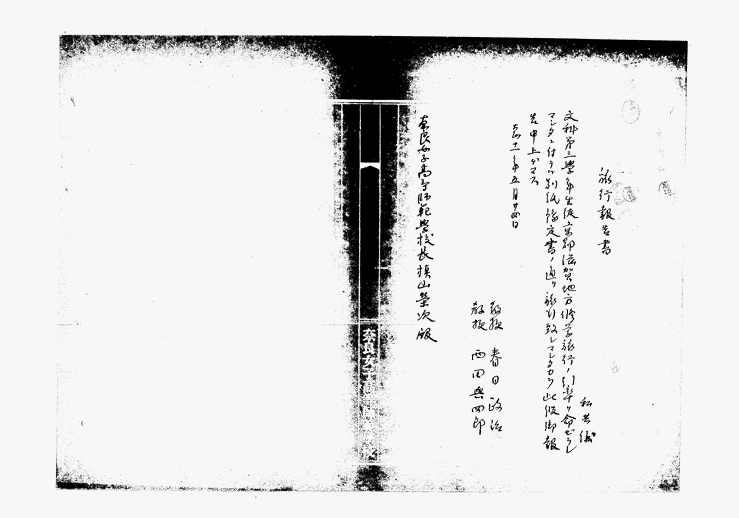 旅行報告書
私共儀
文科第三学年生徒京都滋賀地方修学旅行ノ引率ヲ命ゼラレ
マシタニ付テハ別紙豫定書ノ通リ旅行致シマシタカラ此段御報
告申上ゲマス
大正十一年五月廿四日
教授 春日政治
教授 西田與四郎
奈良女子高等師範學校長槇山榮次殿
奈良女子高等師範學校